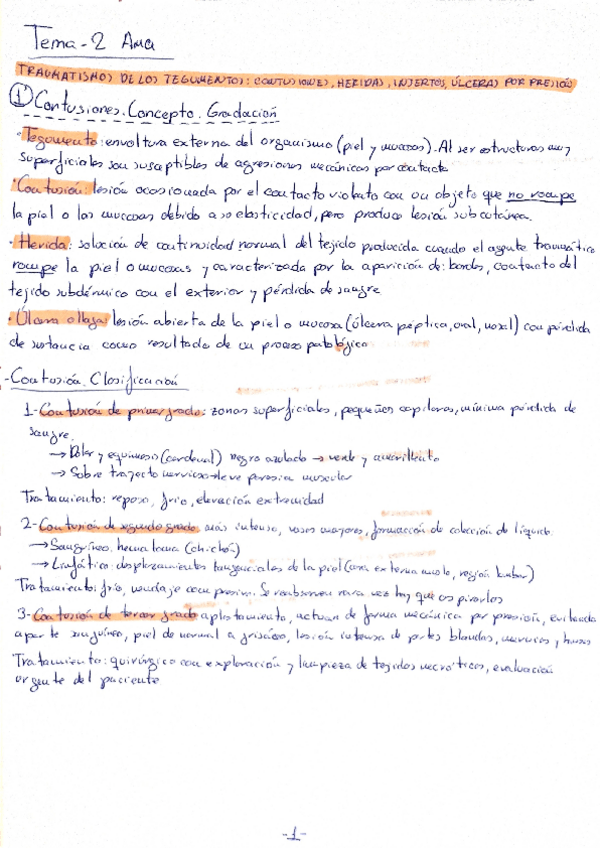 Tema-2 Ama
TRAUMATISMOS DE LOS TEGUMENTOS: CONTUSIONES, HERIDAS, INJERTOS, ÚLCERAS POR PRESIÓN
① Contusiones. Concepto. Gradación
· Tegumento: envoltura externa del organismo (piel y mucosas). Al ser estructuras muy
superficiales son susceptibles de agresiones mecánicas por contacto
· Contusión: lesión ocasionada por el contacto violento con un objeto que no rompe
la piel o las mucosas debido a su elasticidad, pero produce lesión subcutánea.
· Herida: solución de continuidad normal del tejido producida cuando el agente traumático
rompe la piel o mucosas y caracterizada por la aparición de: bordes, contacto del
tejido subdérmico con el exterior y pérdida de sangre
· Úlcera o llaga: lesión abierta de la piel o mucosa (úlcera péptica, oral, nasal) con pérdida
de sustancia como resultado de un proceso patológico
- Contusión. Clasificación
1- Contusión de primer grado: zonas superficiales, pequeños capilares, mínima pérdida de
sangre.
→ Dolor y equimosis (cardenal) negro azulado → verde y amarillento
→ Sobre trayecto nervioso → leve paresia muscular
Tratamiento: reposo, frío, elevación extremidad
2- Contusión de segundo grado: más intenso, vasos mayores, formación de colección de líquido:
→ Sanguíneo: hematoma (chichón)
→ Linfático: desplazamientos tangenciales de la piel (cara externa muslo, región lumbar)
Tratamiento: frío, vendaje compresivo. Se reabsorben rara vez hay que
3- Contusión de tercer grado: aplastamiento, actúan de forma mecánica por presión, evitando
aporte sanguíneo, piel de normal a grisáceo, lesión intensa de partes blandas, nervios, huesos
Tratamiento: quirúrgico con exploración y limpieza de tejidos necróticos, evaluación
urgente del paciente
-1-